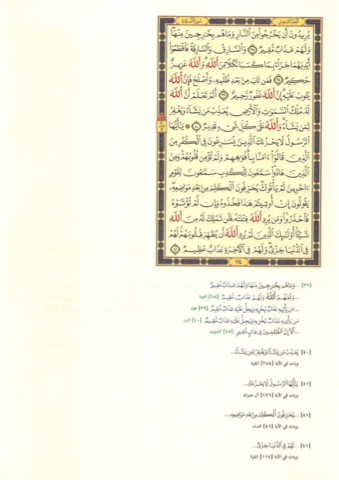 يُرِيدُونَ أَن يَخْرُجُوا۟ مِنَ ٱلنَّارِ وَمَا هُم بِخَٰرِجِينَ مِنْهَا
وَلَهُمْ عَذَابٌ مُّقِيمٌ ٣٧ وَٱلسَّارِقُ وَٱلسَّارِقَةُ فَٱقْطَعُوٓا۟
أَيْدِيَهُمَا جَزَآءًۢ بِمَا كَسَبَا نَكَٰلًا مِّنَ ٱللَّهِ وَٱللَّهُ عَزِيزٌ
حَكِيمٌ ٣٨ فَمَن تَابَ مِنۢ بَعْدِ ظُلْمِهِۦ وَأَصْلَحَ فَإِنَّ ٱللَّهَ
يَتُوبُ عَلَيْهِ إِنَّ ٱللَّهَ غَفُورٌ رَّحِيمٌ ٣٩ أَلَمْ تَعْلَمْ أَنَّ ٱللَّهَ
لَهُۥ مُلْكُ ٱلسَّمَٰوَٰتِ وَٱلْأَرْضِ يُعَذِّبُ مَن يَشَآءُ وَيَغْفِرُ
لِمَن يَشَآءُ وَٱللَّهُ عَلَىٰ كُلِّ شَىْءٍ قَدِيرٌ ٤٠ يَٰٓأَيُّهَا
ٱلرَّسُولُ لَا يَحْزُنكَ ٱلَّذِينَ يُسَٰرِعُونَ فِى ٱلْكُفْرِ مِنَ
ٱلَّذِينَ قَالُوٓا۟ ءَامَنَّا بِأَفْوَٰهِهِمْ وَلَمْ تُؤْمِن قُلُوبُهُمْ وَمِنَ
ٱلَّذِينَ هَادُوا۟ سَمَّٰعُونَ لِلْكَذِبِ سَمَّٰعُونَ لِقَوْمٍ
ءَاخَرِينَ لَمْ يَأْتُوكَ يُحَرِّفُونَ ٱلْكَلِمَ مِنۢ بَعْدِ مَوَاضِعِهِۦ
يَقُولُونَ إِنْ أُوتِيتُمْ هَٰذَا فَخُذُوهُ وَإِن لَّمْ تُؤْتَوْهُ
فَٱحْذَرُوا۟ وَمَن يُرِدِ ٱللَّهُ فِتْنَتَهُۥ فَلَن تَمْلِكَ لَهُۥ مِنَ ٱللَّهِ
شَيْـًٔا أُو۟لَٰٓئِكَ ٱلَّذِينَ لَمْ يُرِدِ ٱللَّهُ أَن يُطَهِّرَ قُلُوبَهُمْ لَهُمْ
فِى ٱلدُّنْيَا خِزْىٌ وَلَهُمْ فِى ٱلْءَاخِرَةِ عَذَابٌ عَظِيمٌ ٤١
١١٤
[٣٧] ... وَمَا هُم بِخَٰرِجِينَ مِنْهَا وَلَهُمْ عَذَابٌ مُّقِيمٌ
... وَلَعَنَهُمُ ٱللَّهُ وَلَهُمْ عَذَابٌ مُّقِيمٌ [٦٨] التوبة
... مَن يَأْتِيهِ عَذَابٌ يُخْزِيهِ وَيَحِلُّ عَلَيْهِ عَذَابٌ مُّقِيمٌ [٣٩] هود
مَن يَأْتِيهِ عَذَابٌ يُخْزِيهِ وَيَحِلُّ عَلَيْهِ عَذَابٌ مُّقِيمٌ [٤٠] الزمر
... أَلَآ إِنَّ ٱلظَّٰلِمِينَ فِى عَذَابٍ مُّقِيمٍ [٤٥] الشورى
[٤٠] يُعَذِّبُ مَن يَشَآءُ وَيَغْفِرُ لِمَن يَشَآءُ ...
وردت في الآية [٢٨٤] البقرة
[٤١] يَٰٓأَيُّهَا ٱلرَّسُولُ لَا يَحْزُنكَ ...
وردت في الآية [١٧٦] آل عمران
[٤١] ... يُحَرِّفُونَ ٱلْكَلِمَ مِنۢ بَعْدِ مَوَاضِعِهِۦ ...
وردت في الآية [٤٦] النساء
[٤١] ... لَهُمْ فِى ٱلدُّنْيَا خِزْىٌ ...
وردت في الآية [١١٤] البقرة